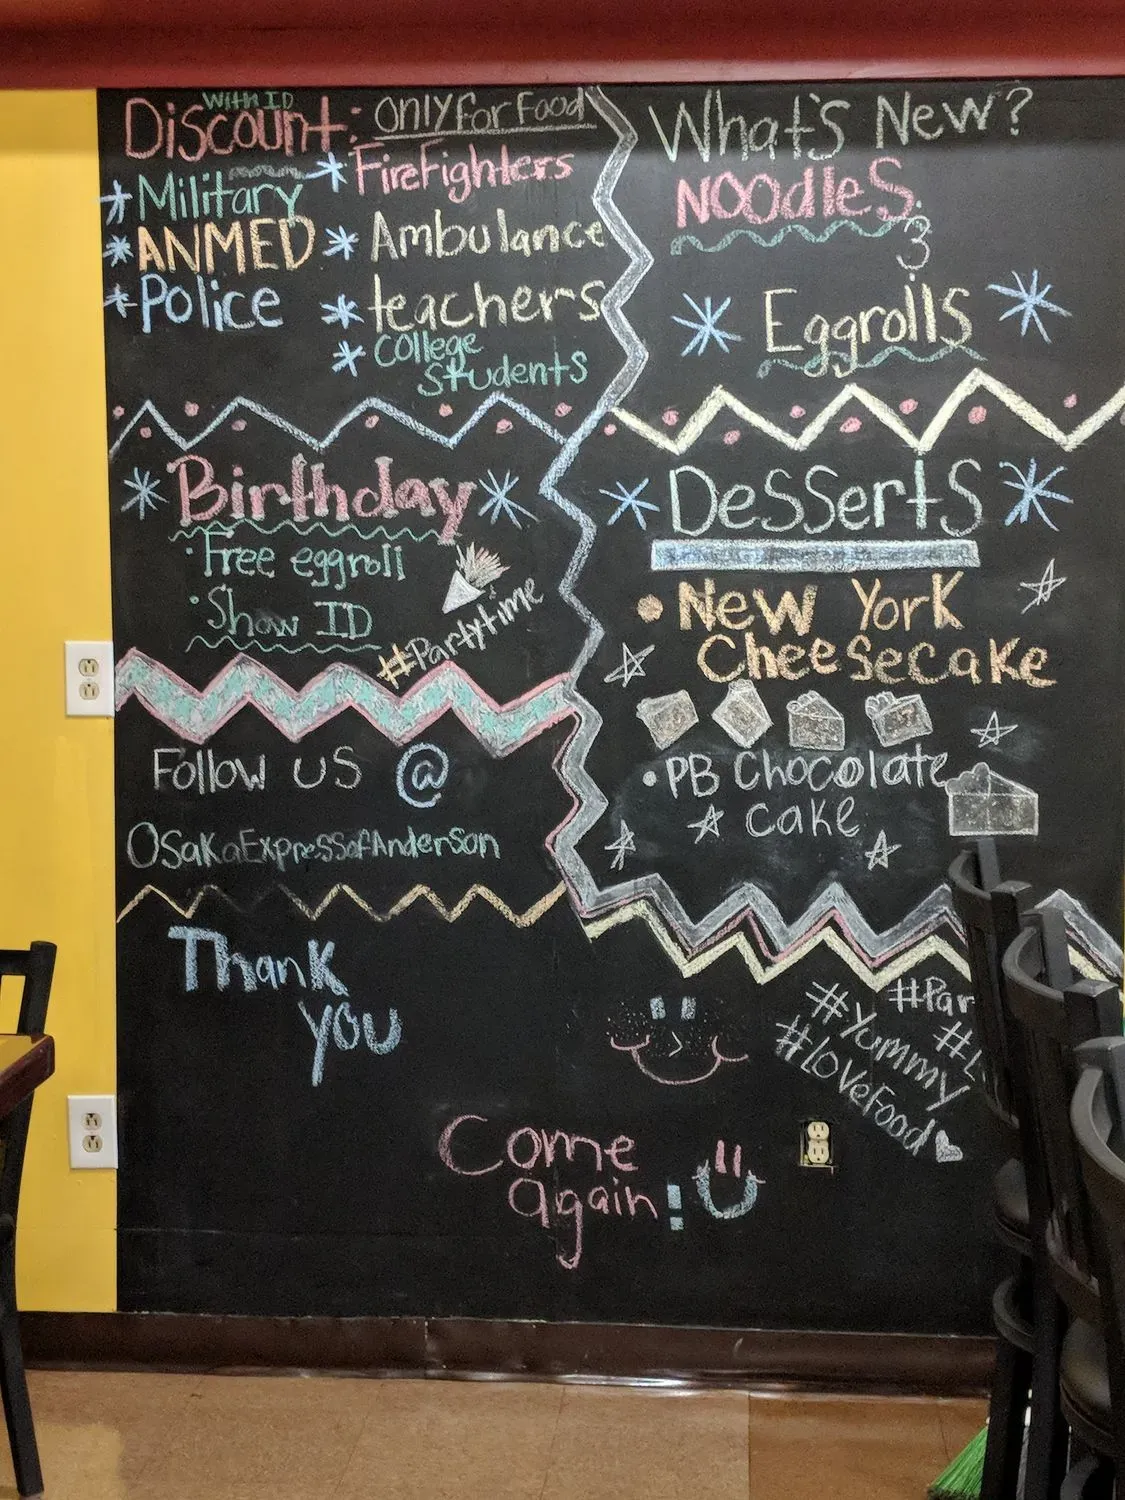 With ID
Discount: Only For Food
* Military
* ANMED
* Police
* FireFighters
* Ambulance
* teachers
* College
Students
What's New?
Noodles
3
Eggrolls
Birthday
· Free eggroll
· Show ID
#Partytime
Desserts
• New York
Cheesecake
• PB Chocolate
Cake
Follow us @
OsakaExpressofAnderson
Thank
you
Come
again!
#Par
#L
#Yummy
#LoveFood